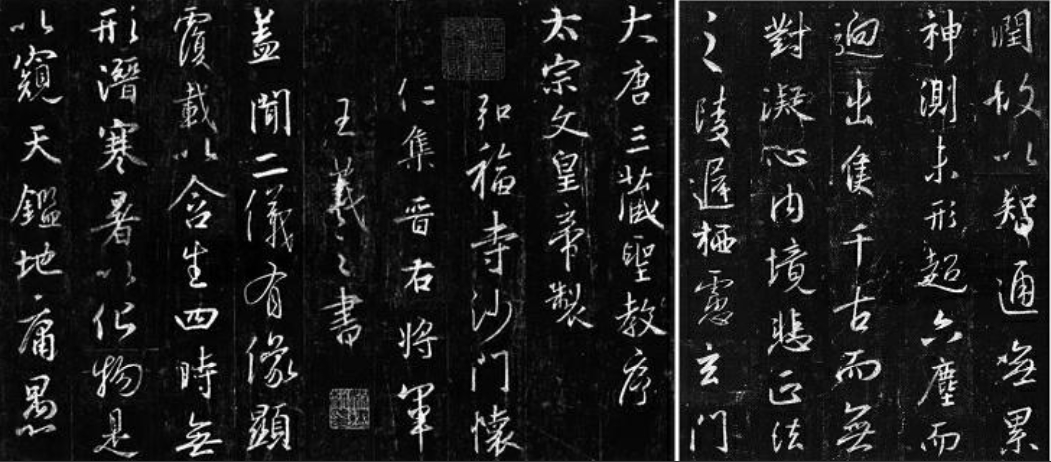 潤故以智通無累
神測未形超六塵而
迥出隻千古而無
對凝心內境悲正法
之陵遲栖慮玄門
大唐三藏聖教序
太宗文皇帝製
弘福寺沙門懷
仁集晋右將軍
王羲之書
蓋聞二儀有像顯
覆載以含生四時無
形潛寒暑以化物是
以窺天鑑地庸愚